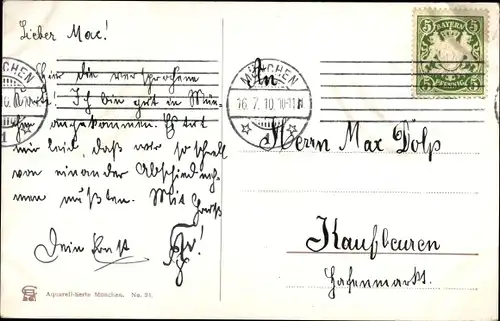 Lieber Max!
Hier die versprochene
Karte. Ich bin gut in Mün-
chen angekommen. Es tut
mir leid, daß wir so schnell
von einander Abschied neh-
men mußten. Mit Gruß
Dein Ernst
Aquarell-Serie München. No. 21.
BAYERN
5 5
5 PFENNIG 5
MÜNCHEN
16. 7. 10.
An
Herrn Max Dölp
Kaufbeuren
Hafenmarkt.